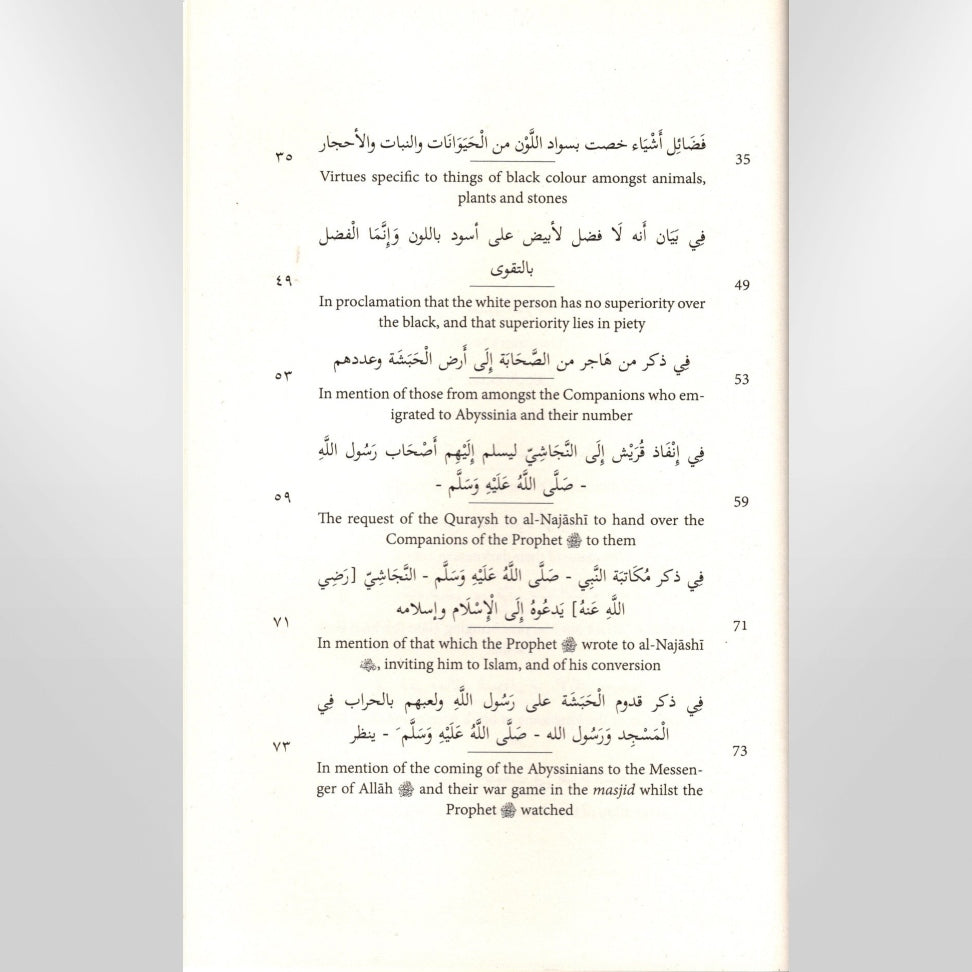 فَضَائِل أَشْيَاء خصت بسواد اللَّوْن من الْحَيَوَانَات والنبات والأحجار
٣٥ 35
Virtues specific to things of black colour amongst animals,
plants and stones
فِي بَيَان أَنه لَا فضل لأبيض على أسود باللون وَإِنَّمَا الْفضل
بالتقوى
٤٩ 49
In proclamation that the white person has no superiority over
the black, and that superiority lies in piety
فِي ذكر من هَاجر من الصَّحَابَة إِلَى أَرض الْحَبَشَة وعددهم
٥٣ 53
In mention of those from amongst the Companions who em-
igrated to Abyssinia and their number
فِي إِنْفَاذ قُرَيْش إِلَى النَّجَاشِيّ ليسلم إِلَيْهِم أَصْحَاب رَسُول اللَّهِ
- صَلَّى اللَّهُ عَلَيْهِ وَسَلَّم -
٥٩ 59
The request of the Quraysh to al-Najāshī to hand over the
Companions of the Prophet ﷺ to them
فِي ذكر مُكَاتبَة النَّبِي - صَلَّى اللَّهُ عَلَيْهِ وَسَلَّم - النَّجَاشِيّ [رَضِي
اللَّهِ عَنهُ] يَدعُوهُ إِلَى الْإِسْلَام وإسلامه
٧١ 71
In mention of that which the Prophet ﷺ wrote to al-Najāshī
, inviting him to Islam, and of his conversion
فِي ذكر قدوم الْحَبَشَة على رَسُول اللَّهِ ولعبهم بالحراب فِي
الْمَسْجِد وَرَسُول الله - صَلَّى اللَّهُ عَلَيْهِ وَسَلَّمَ - ينظر
٧٣ 73
In mention of the coming of the Abyssinians to the Messen-
ger of Allāh ﷺ and their war game in the masjid whilst the
Prophet ﷺ watched